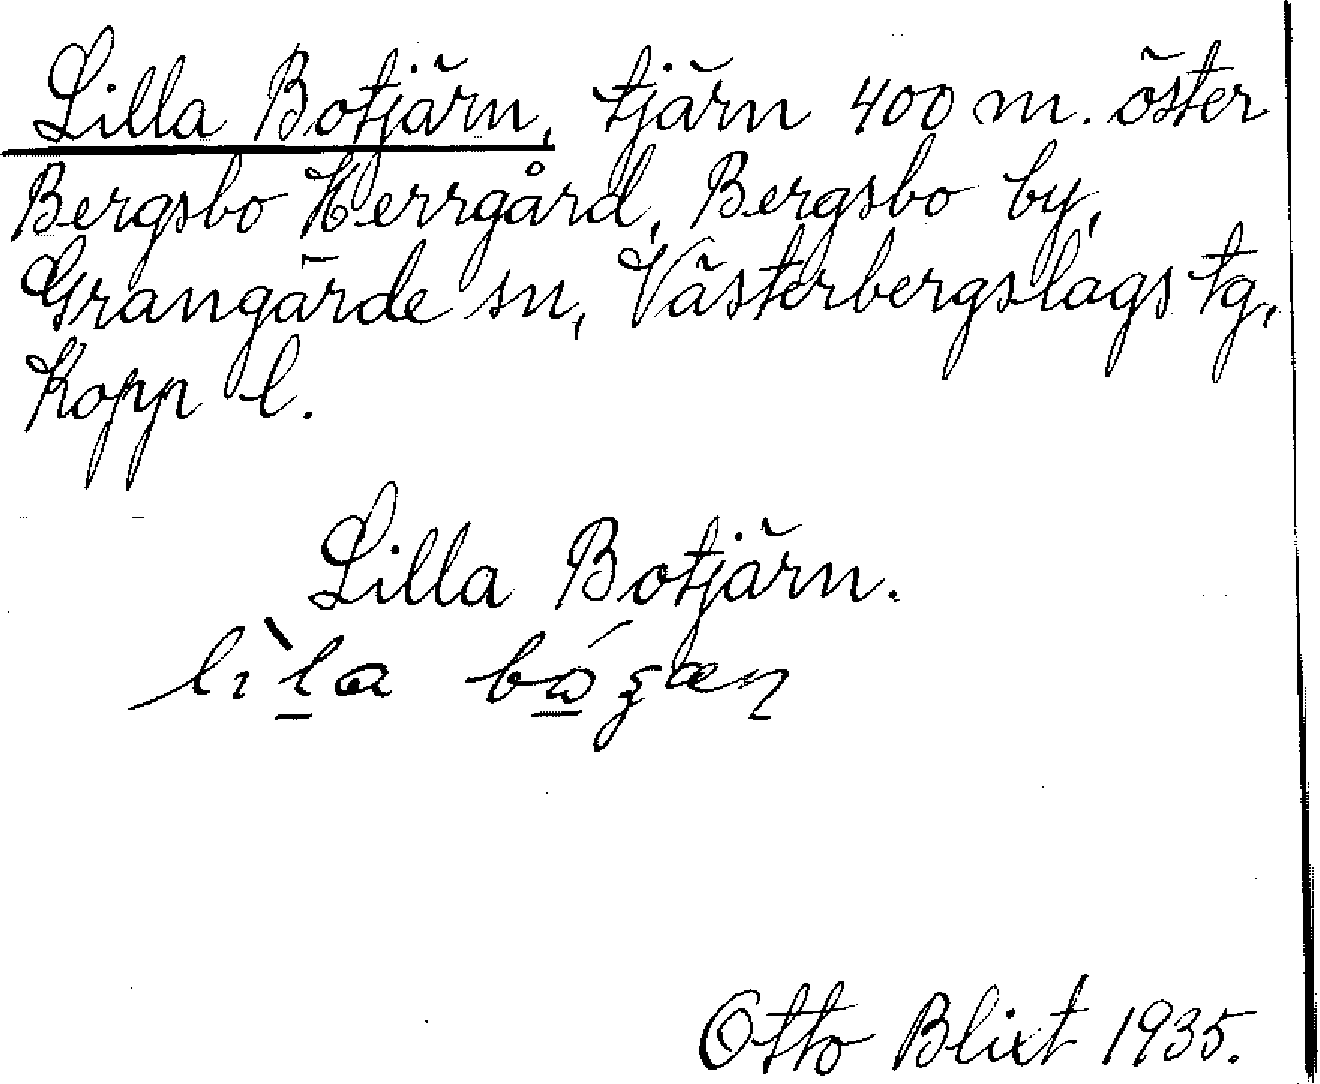 Lilla Botjärn, tjärn 400 m. öster
Bergsbo Herrgård, Bergsbo by,
Grangärde sn, Västerbergslags tg,
Kopp l.
Lilla Botjärn.
Otto Blixt 1935.